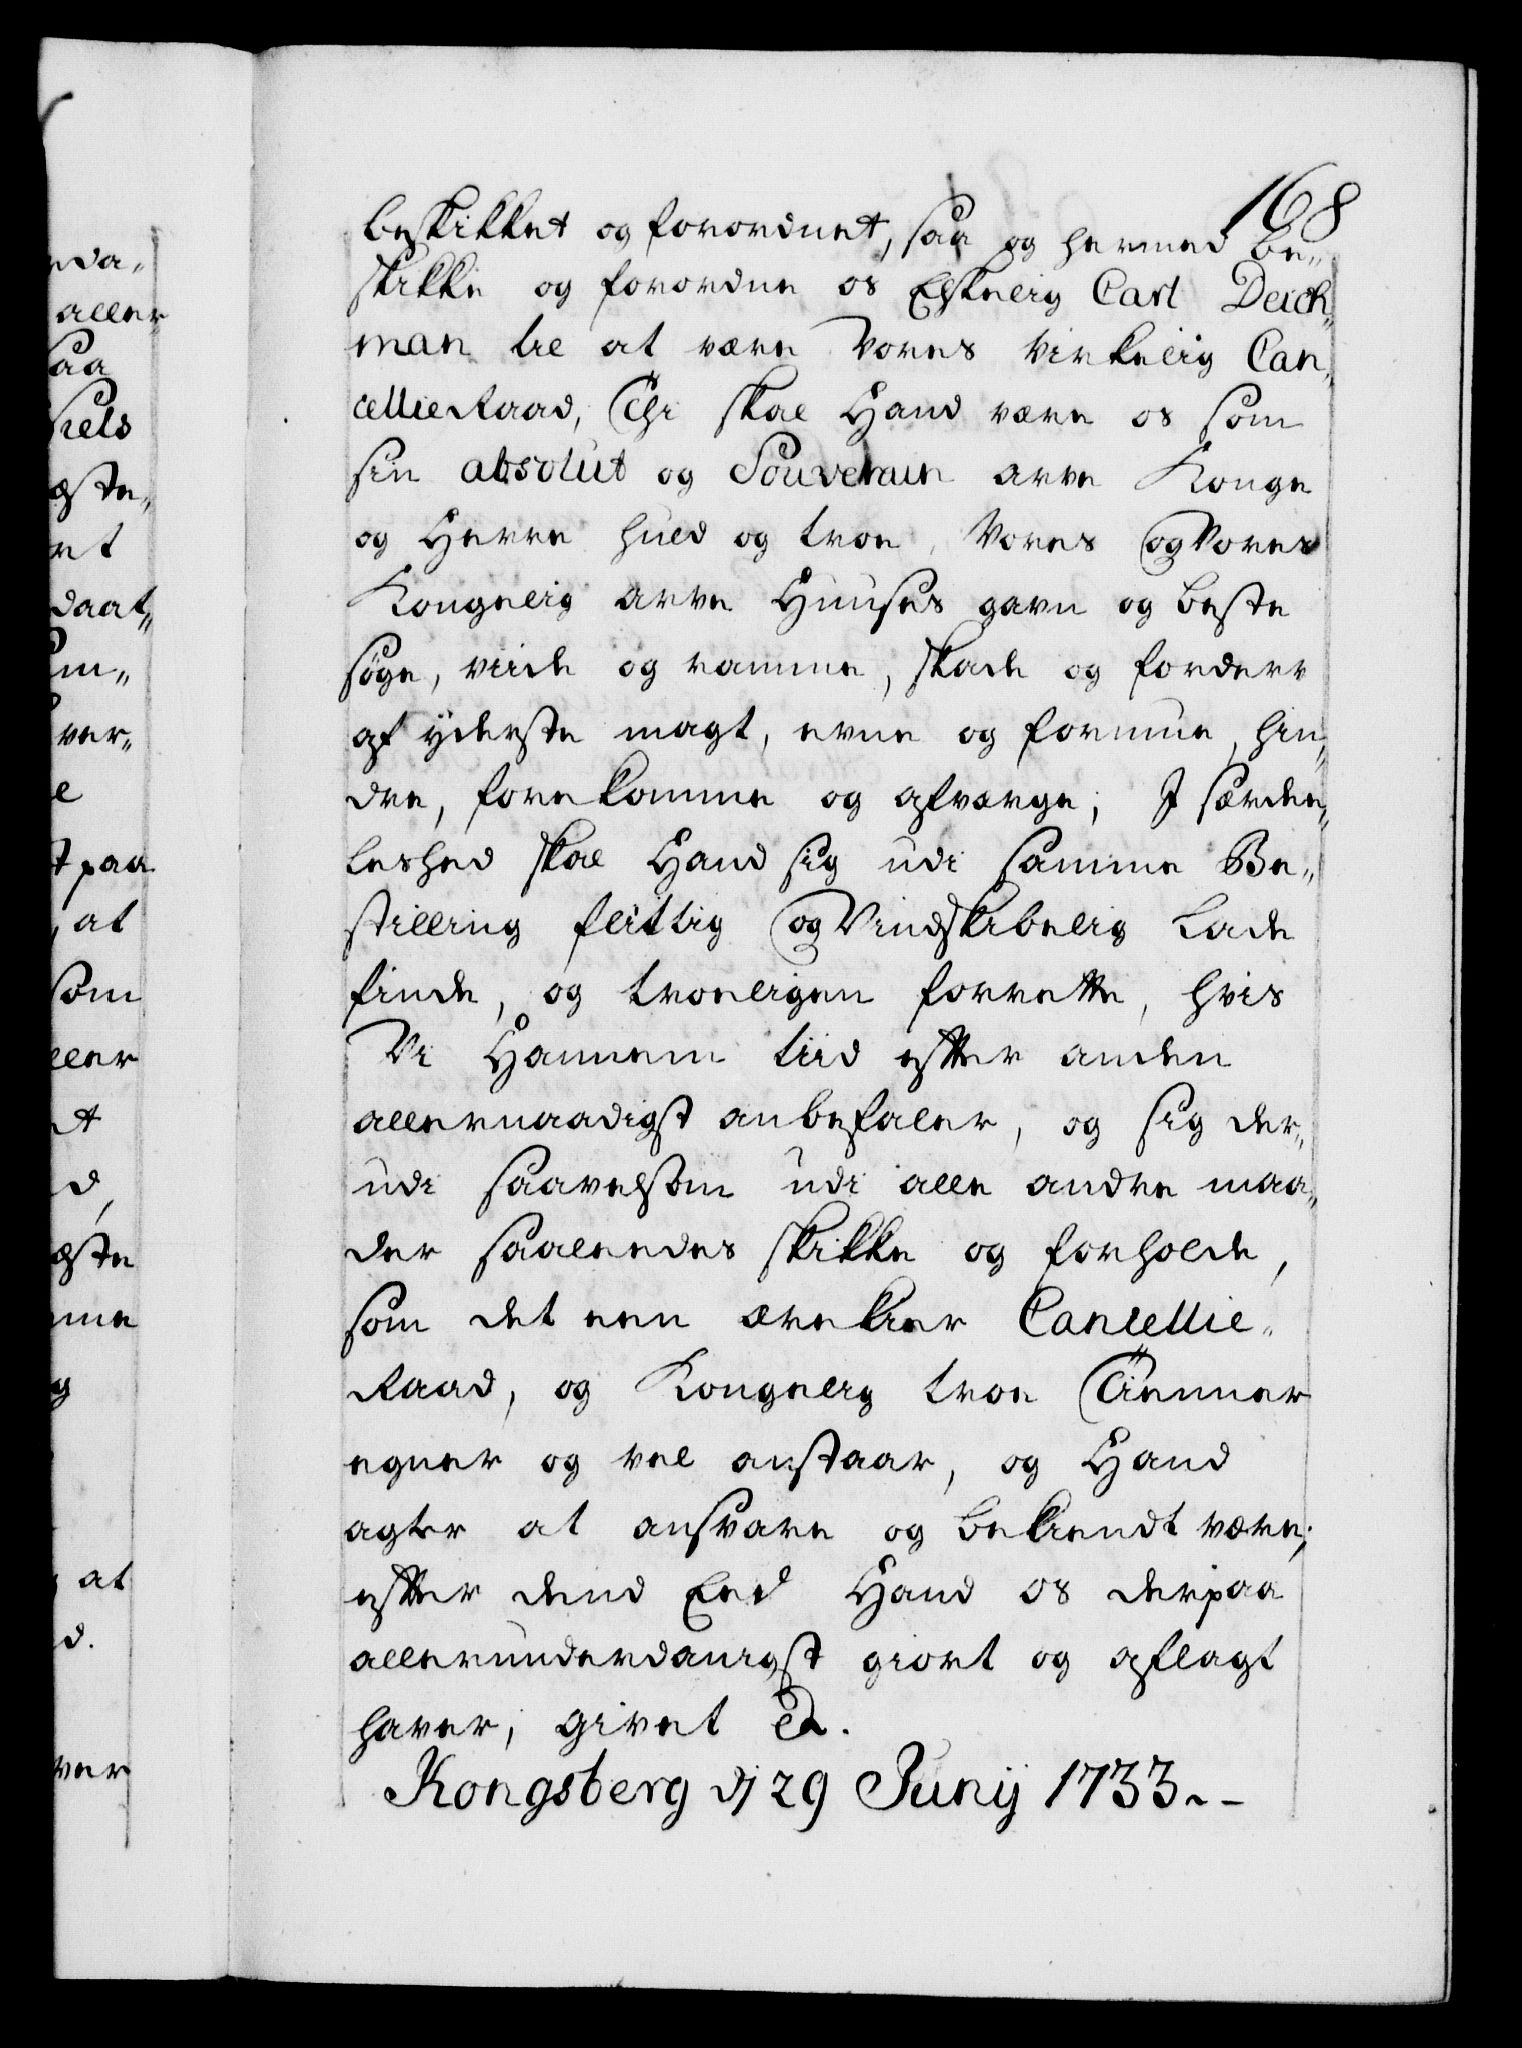 168
beskikket og forordnet, saa og hermed be„
skikke og forordne os Elskelig Carl Deich„
man til at være Vores Virkelig Can„
cellie Raad, Thi skal Hand være os som
sin absolut og Souverain arve Konge
og Herre huld og troe, Vores og Vores
Kongelig arve Huuses gavn og beste
søge, viide og ramme, skade og forderv
af yderste magt, evne og formue, hin„
dre, forekomme og afværge; I særde„
leshed skal Hand sig udi samme Be„
stilling flittig og Vindskibelig lade
finde, og troeligen forrette, hvis
Vi Hannem tiid efter anden
allernaadigst anbefaler, og sig der„
udi saavelsom udi alle andre maa„
der saaleedes skikke og forholde,
som det een ærekier Cancellie„
Raad, og Kongelig troe Tiener
egner og vel anstaar, og Hand
agter at ansvare og bekiendt være;
efter dend Eed Hand os derpaa
allerunderdanigst giort og aflagt
haver, givet &c.
Kongsberg dj 29 Junij 1733.-
nda„
aller
saa
kels
daat„
ver„
paa
at
som
eller
at
d.
ver